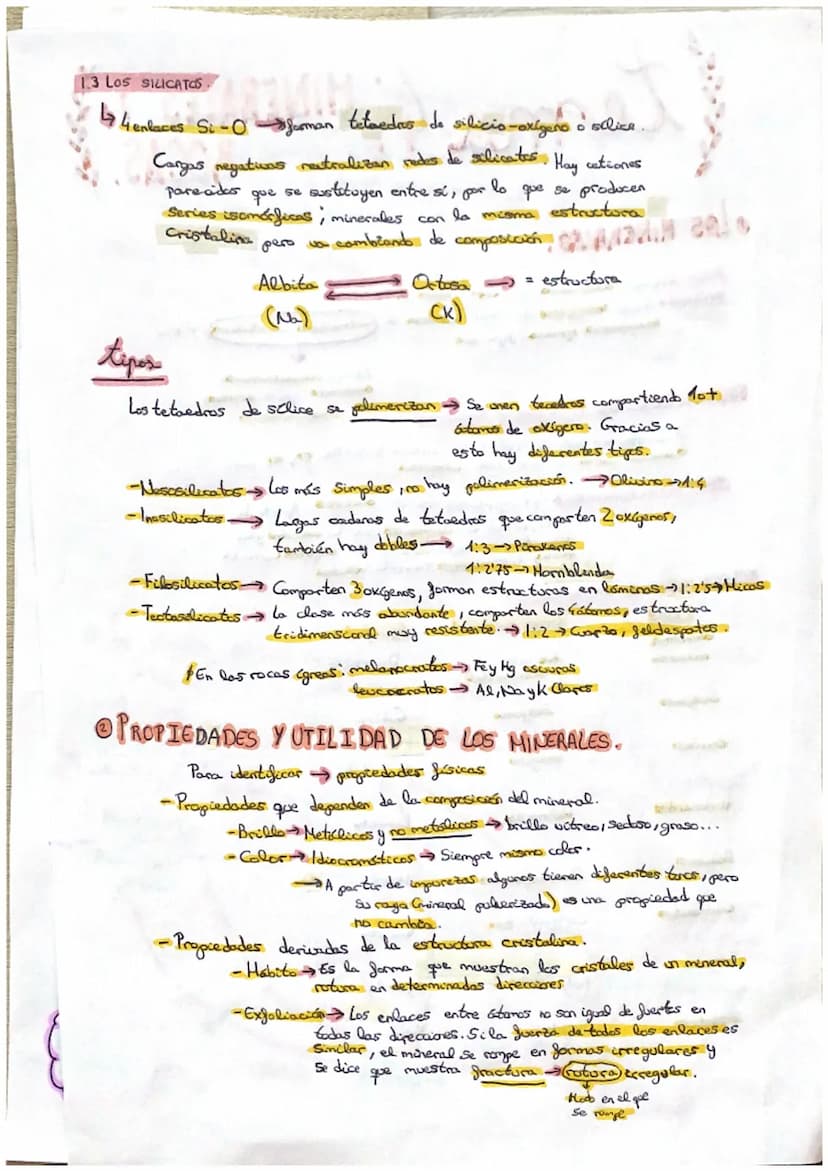 1.3 LOS SILICATOS.
↳ 4 enlaces Si-O → forman tetaedros de silicio-oxígeno o sílice.
Cargas negativas neutralizan redes de silicatos. Hay cationes
parecidos que se sustituyen entre sí, por lo que se producen
series isomórficas; minerales con la misma estructura
cristalina pero va cambiando de composición.
Albita ⇌ Ortosa → = estructura
(Na) (K)
tipos
Los tetaedros de sílice se polimerizan → Se unen teaedros compartiendo 1 o +
átomos de oxígero. Gracias a
esto hay diferentes tipos.
- Nesosilicatos → Los más simples, no hay polimerización. → Olivino → 1:4
- Inosilicatos → Lagas cadenas de tetaedros que comparten 2 oxígenos,
también hay dobles → 1:3 → Piroxenos
1:2'75 → Hornblenda
- Filosilicatos → Comparten 3 oxígenos, forman estructuras en láminas → 1:2'5 → Micas
- Tectosilicatos → La clase más abundante, comparten los 4 átomos, estructura
tridimensional muy resistente. → 1:2 → Cuarzo, feldespatos.
En las rocas ígneas: melanocratos → Fe y Mg oscuras
leucocratos → Al, Na y K Claros
② PROPIEDADES Y UTILIDAD DE LOS MINERALES.
Para identificar → propiedades físicas
- Propiedades que dependen de la composición del mineral.
- Brillo → Metálicos y no metálicos → brillo vítreo, sedoso, graso...
- Color → Idiocromáticos → Siempre mismo color.
→ A partir de impurezas algunos tienen diferentes tonos, pero
su raya (mineral pulverizado) es una propiedad que
no cambia.
- Propiedades derivadas de la estructura cristalina.
- Hábito → Es la forma que muestran los cristales de un mineral,
rotura en determinadas direcciones
- Exfoliación → Los enlaces entre átomos no son igual de fuertes en
todas las direcciones. Si la fuerza de todos los enlaces es
similar, el mineral se rompe en formas irregulares y
se dice que muestra fractura → rotura irregular.
Modo en el que
se rompe